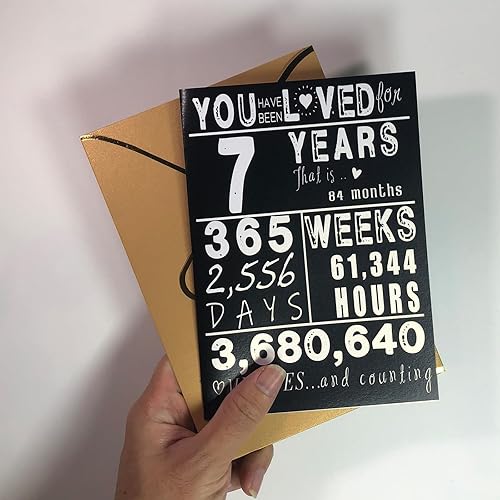 YOU HAVE BEEN LOVED for
7 YEARS
That is ..
84 months
365 WEEKS
2,556 DAYS
61,344 HOURS
3,680,640
...and counting